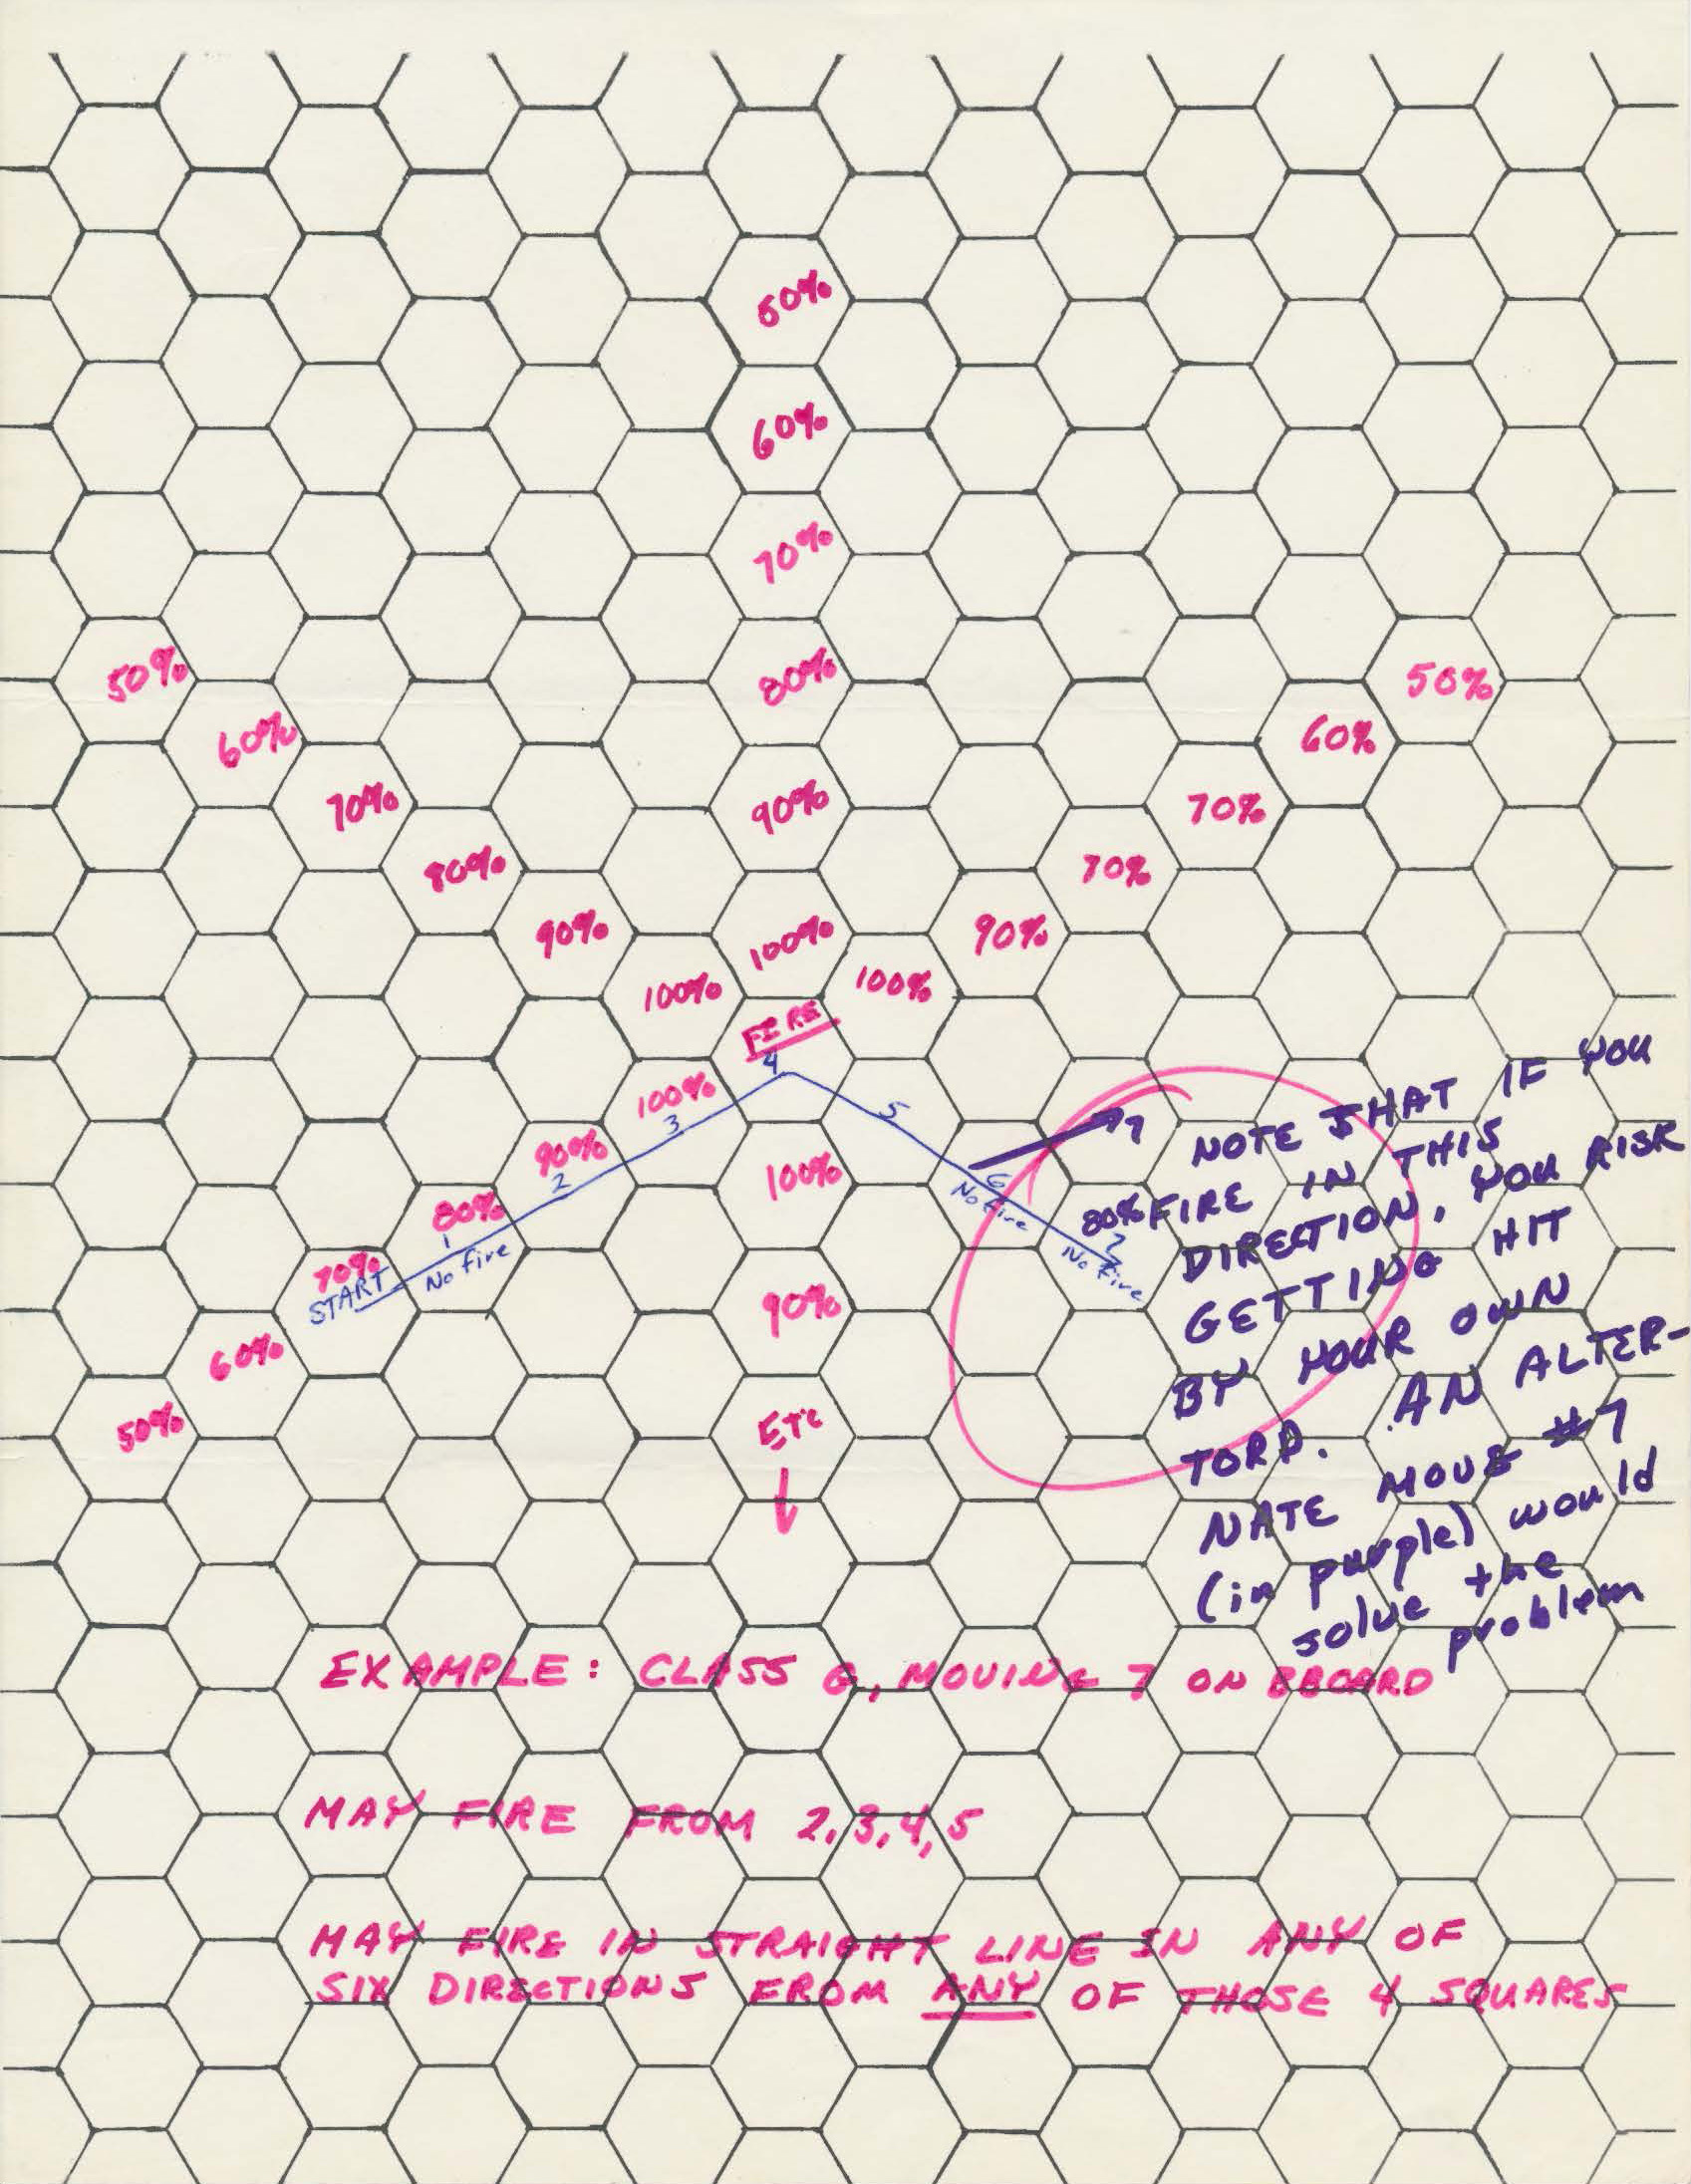 50%
60%
70%
80%
50%
50%
60%
60%
70%
90%
70%
80%
70%
90%
100%
90%
100%
100%
FIRE
4
100%
3
5
90%
2
100%
7
6
No fire
80%
1
No fire
80%
7
No Fire
70%
START
60%
90%
50%
ETC
NOTE THAT IF YOU
FIRE IN THIS
DIRECTION, YOU RISK
GETTING HIT
BY YOUR OWN
TORP. AN ALTER-
NATE MOVE #7
(in purple) would
solve the
problem
EXAMPLE: CLASS G, MOVING 7 ON BBOARD
MAY FIRE FROM 2,3,4,5
MAY FIRE IN STRAIGHT LINE IN ANY OF
SIX DIRECTIONS FROM ANY OF THOSE 4 SQUARES